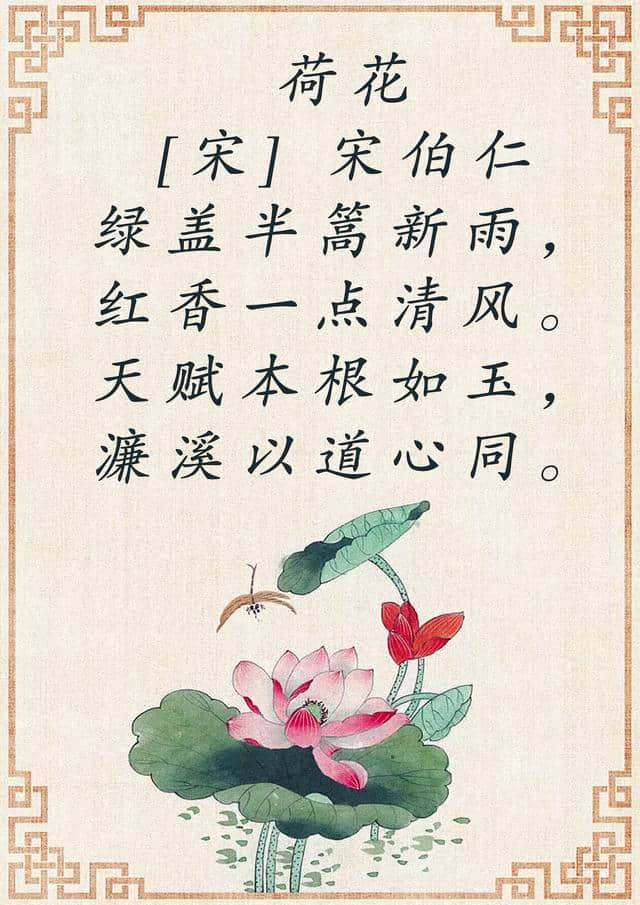 荷花
[宋] 宋伯仁
绿盖半篙新雨，
红香一点清风。
天赋本根如玉，
濂溪以道心同。